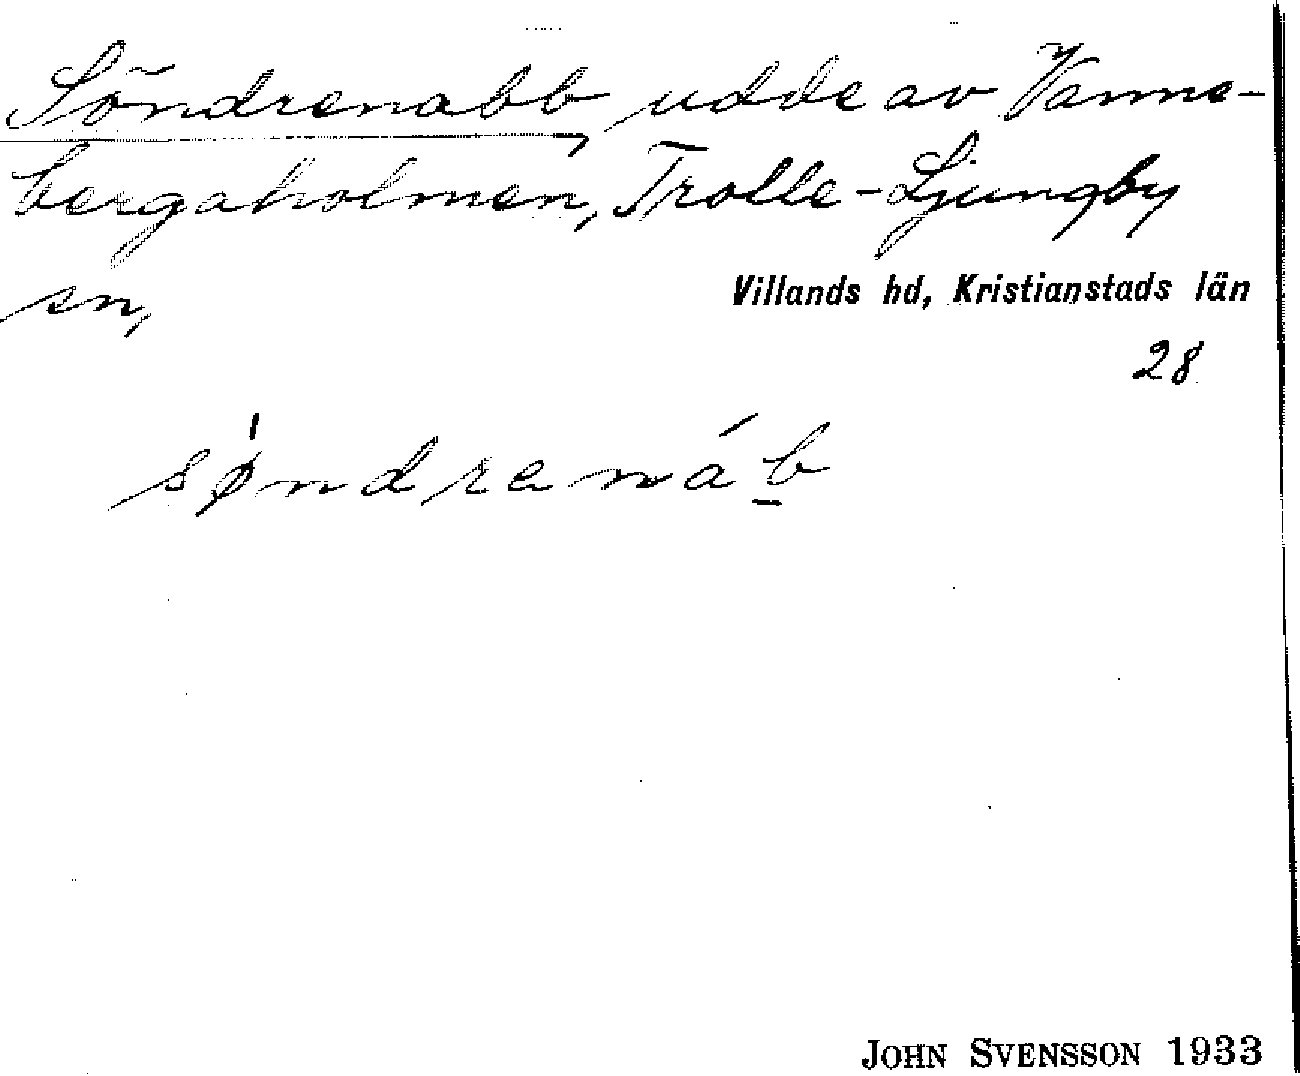 Söndrenabb, udde av Vanne-
bergaholmen, Trolle-Ljungby
sn,
Villands hd, Kristianstads län
28
søndrenáb
JOHN SVENSSON 1933